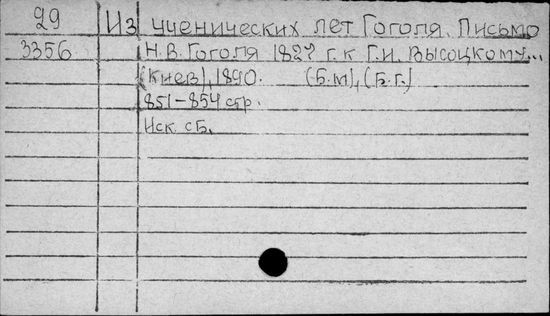 29 Из ученических лет Гоголя. Письмо
3356 Н.В. Гоголя 1827 г. к Г.И. Высоцкому...
(Киев), 1890. (Б.м), (Б.г.)
851-854 стр.
Иск. сб.